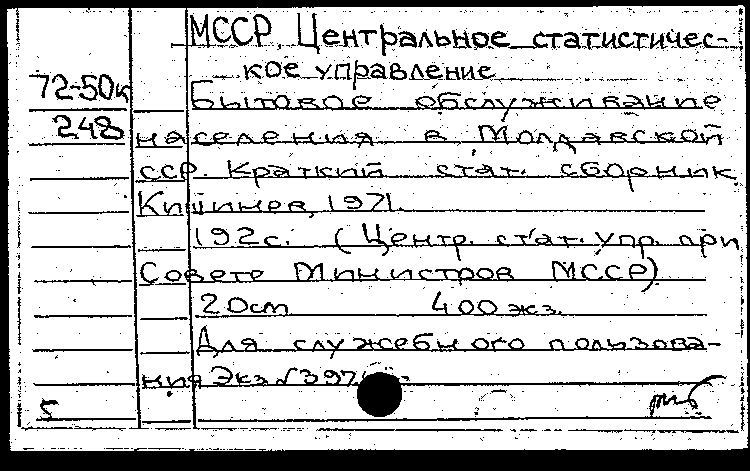 МССР. Центральное статистичес-
кое управление
72-50к
Бытовое обслуживание
248
населения в Молдавской
ССР. Краткий стат. сборник
Кишинев, 1971.
192с. (Центр. стат. упр. при
Совете Министров МССР)
20см 400 экз.
Для служебного пользова-
ния Экз №397
5